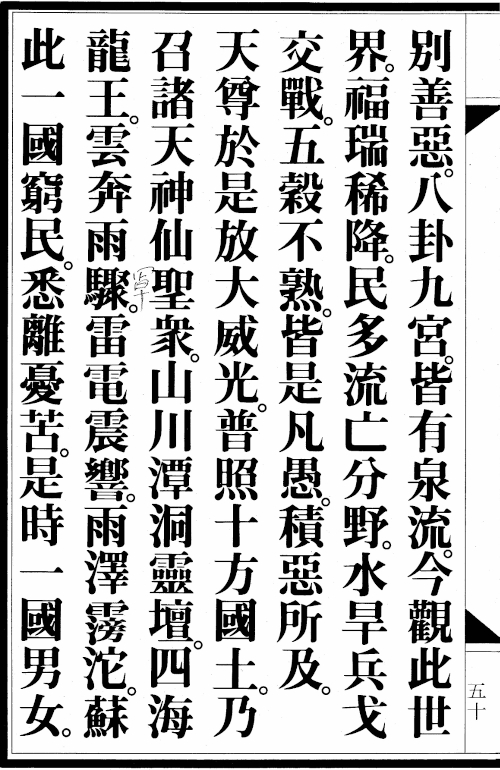 別善惡。八卦九宮。皆有泉流。今觀此世
界。福瑞稀降。民多流亡分野。水旱兵戈
交戰。五穀不熟。皆是凡愚。積惡所及。
天尊於是放大威光。普照十方國土。乃
召諸天神仙聖衆。山川潭洞靈壇。四海
龍王。雲奔雨驟。雷電震響。雨澤霶沱。蘇
此一國窮民。悉離憂苦。是時一國男女。
五十